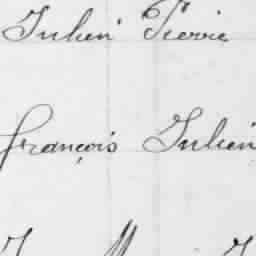 Julien Pierre
François Julien